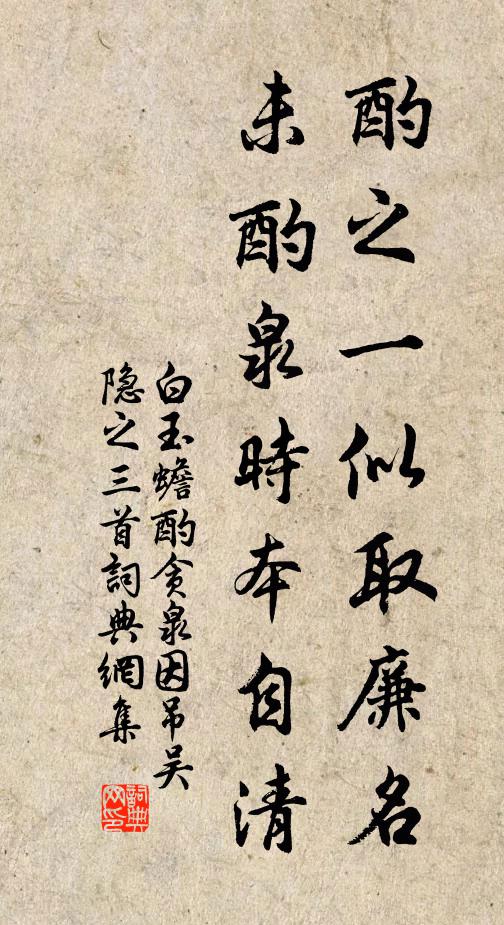 酌之一似取廉名
未酌泉時本自清
白玉蟾酌贪泉因吊吴
隐之三首詞典網集
詞典網印